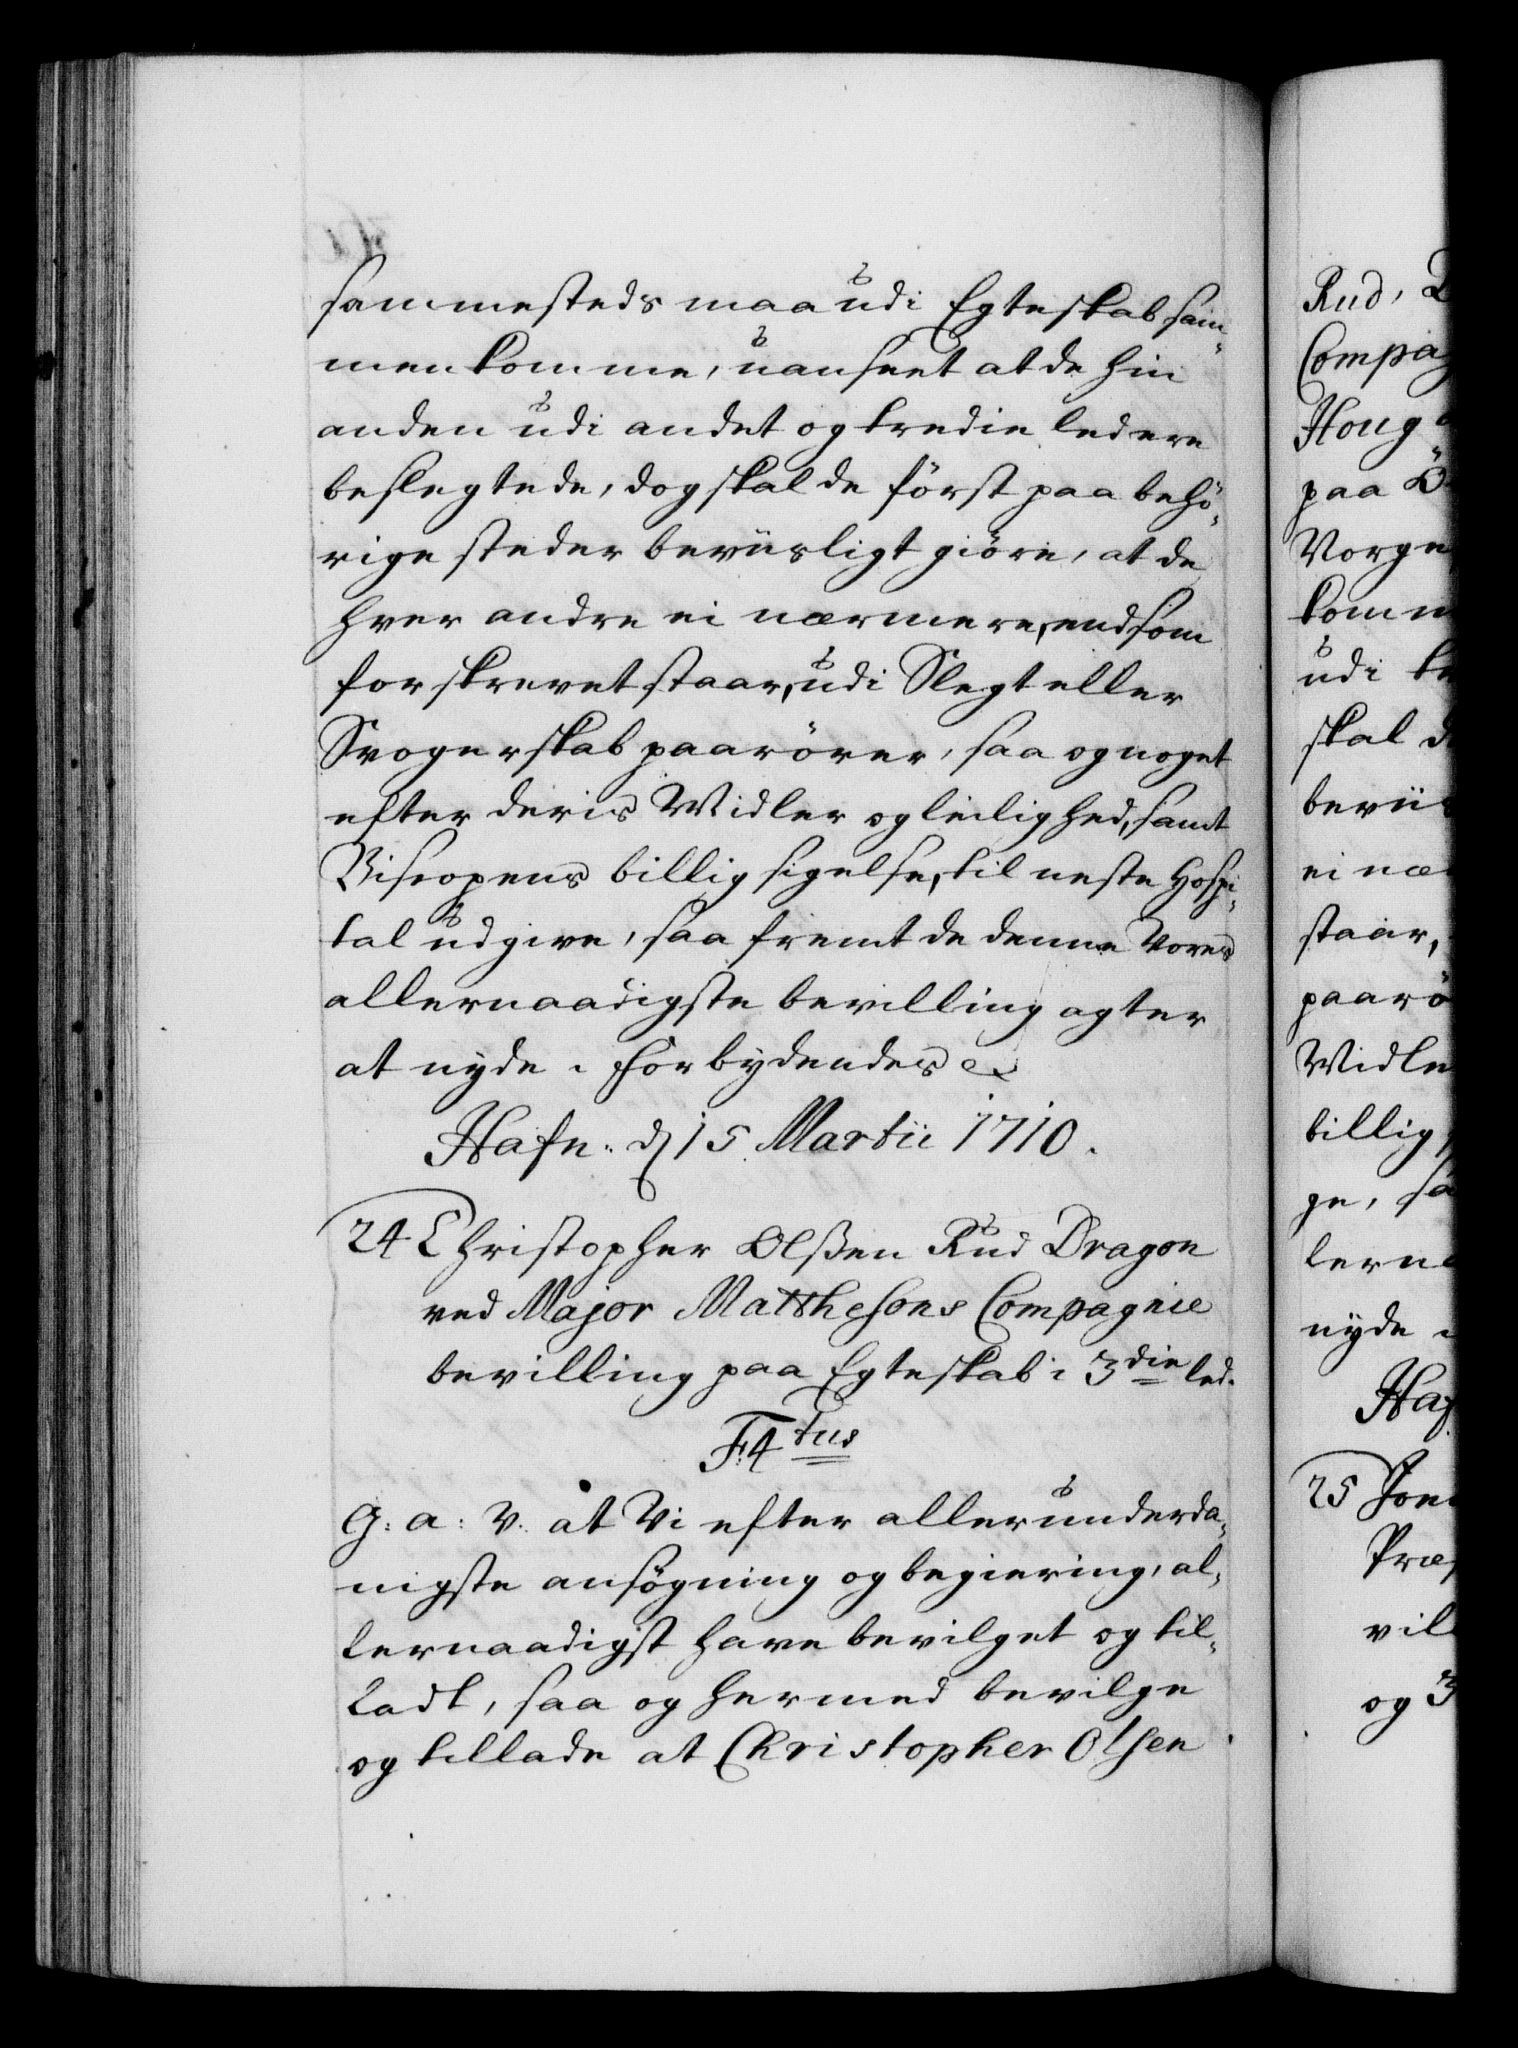 sammesteds maa udi Egteskab sam-
menkomme, uanseet at de hin
anden udi andet og tredie led ere
beslegtede, dog skal de först paa behö-
rige steder beviisligt giöre, at de
hver andre ei nærmere, end som
forskrevet staar, udi Slegt eller
Svogerskab paarörer, saa og noget
efter deris Midler og leilighed, samt
Biscopens billig sigelse, til neste Hospi-
tal udgive, saa fremt de denne Vores
allernaadigste bevilling agter
at nyde. Forbydendes &
Hafn: d 15 Martii 1710.
24 Christopher Olssen Rud Dragon
ved Major Matthesons Compagnie
bevilling paa Egteskab i 3die led.
F: 4tus
G: a: V: at Vi efter allerunderda-
nigste ansögning og begiering, al-
lernaadigst have bevilget og til-
ladt, saa og hermed bevilge
og tillade at Christopher Olsen
Rud,
Compag
Houg
paa
Vorge
komm
udi
skal d
beviis
ei næ
staar,
paarö
Midle
billig
ge, sa
lerna
nyde
Haf
25 Jon
Præ
vil
og 3